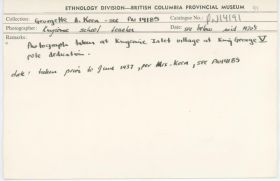 ETHNOLOGY DIVISION—BRITISH COLUMBIA PROVINCIAL MUSEUM
Collection: Georgette A. Korn - see PN 14185 Catalogue No.: PN14191
Photographer: Kingcome school teacher Date: see below mid 1930s
Remarks:
Photographs taken at Kingcome Inlet village at King George V
pole dedication.
date: taken prior to June 1937, per Mrs. Korn, see PN14185